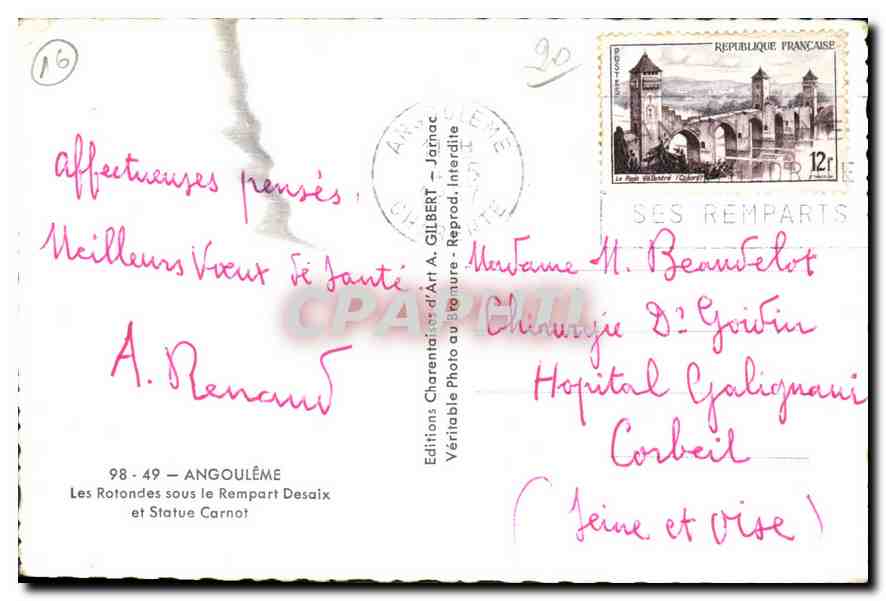 16
20
POSTES
REPUBLIQUE FRANÇAISE
12f
Le Pont Valentré (Cahors)
ANGOULÊME
CHARENTE
SES REMPARTS
affectueuses pensés.
Meilleurs Vœux de Santé
A. Renaud
98 - 49 — ANGOULÊME
Les Rotondes sous le Rempart Desaix
et Statue Carnot
Editions Charentaises d'Art A. GILBERT — Jarnac
Véritable Photo au Bromure - Reprod. Interdite
CPAPHIL
Madame M. Beaudelot
Chirurgie Dr Goidin
Hopital Galignani
Corbeil
(Seine et Oise)